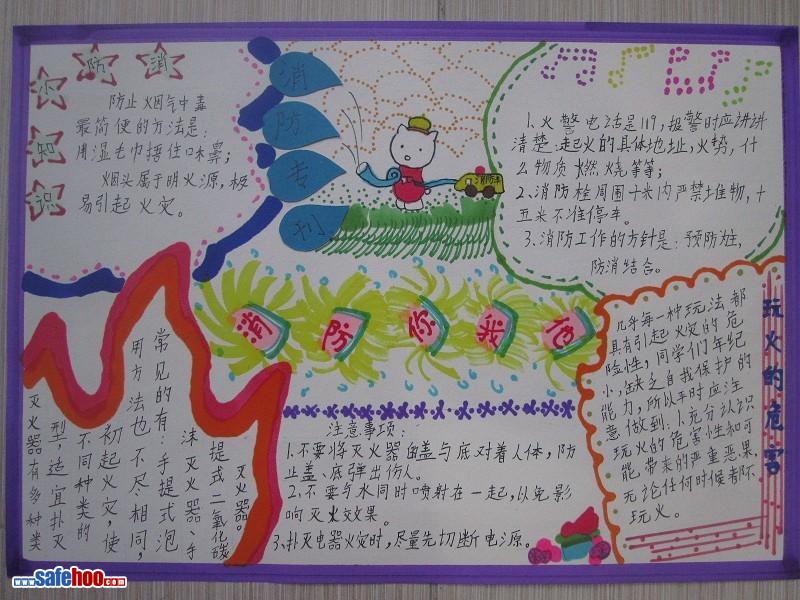 消防小知识
防止烟气中毒
最简便的方法是:
用湿毛巾捂住味鼻;
烟头属于明火源,极
易引起火灾。
消防专刊
消防车
1.火警电话是119,报警时应讲讲
清楚:起火的具体地址,火势,什
么物质燃烧等等;
2、消防栓周围十米内严禁堆物,十
五米不准停车。
3、消防工作的方针是:预防为主,
防消结合。
消防你我他
玩火的危害
几乎每一种玩法都
具有引起火灾的危
险性,同学们年纪
小,缺乏自我保护的
能力,所以平时应注
意做到:1.充分认识
玩火的危害性和可
能带来的严重恶果,
无论任何时候都不
玩火。
灭火器有多种类
型:适宜扑灭
不同种类的
初起火灾,使
用方法也不尽相同,
常见的有:手提式泡
沫灭火器、手
提式二氧化碳
灭火器。
注意事项:
1.不要将灭火器的盖与底对着人体,防
止盖、底弹出伤人。
2、不要与水同时喷射在一起,以免影
响灭火效果。
3、扑灭电器火灾时,尽量先切断电源。
www.safehoo.com